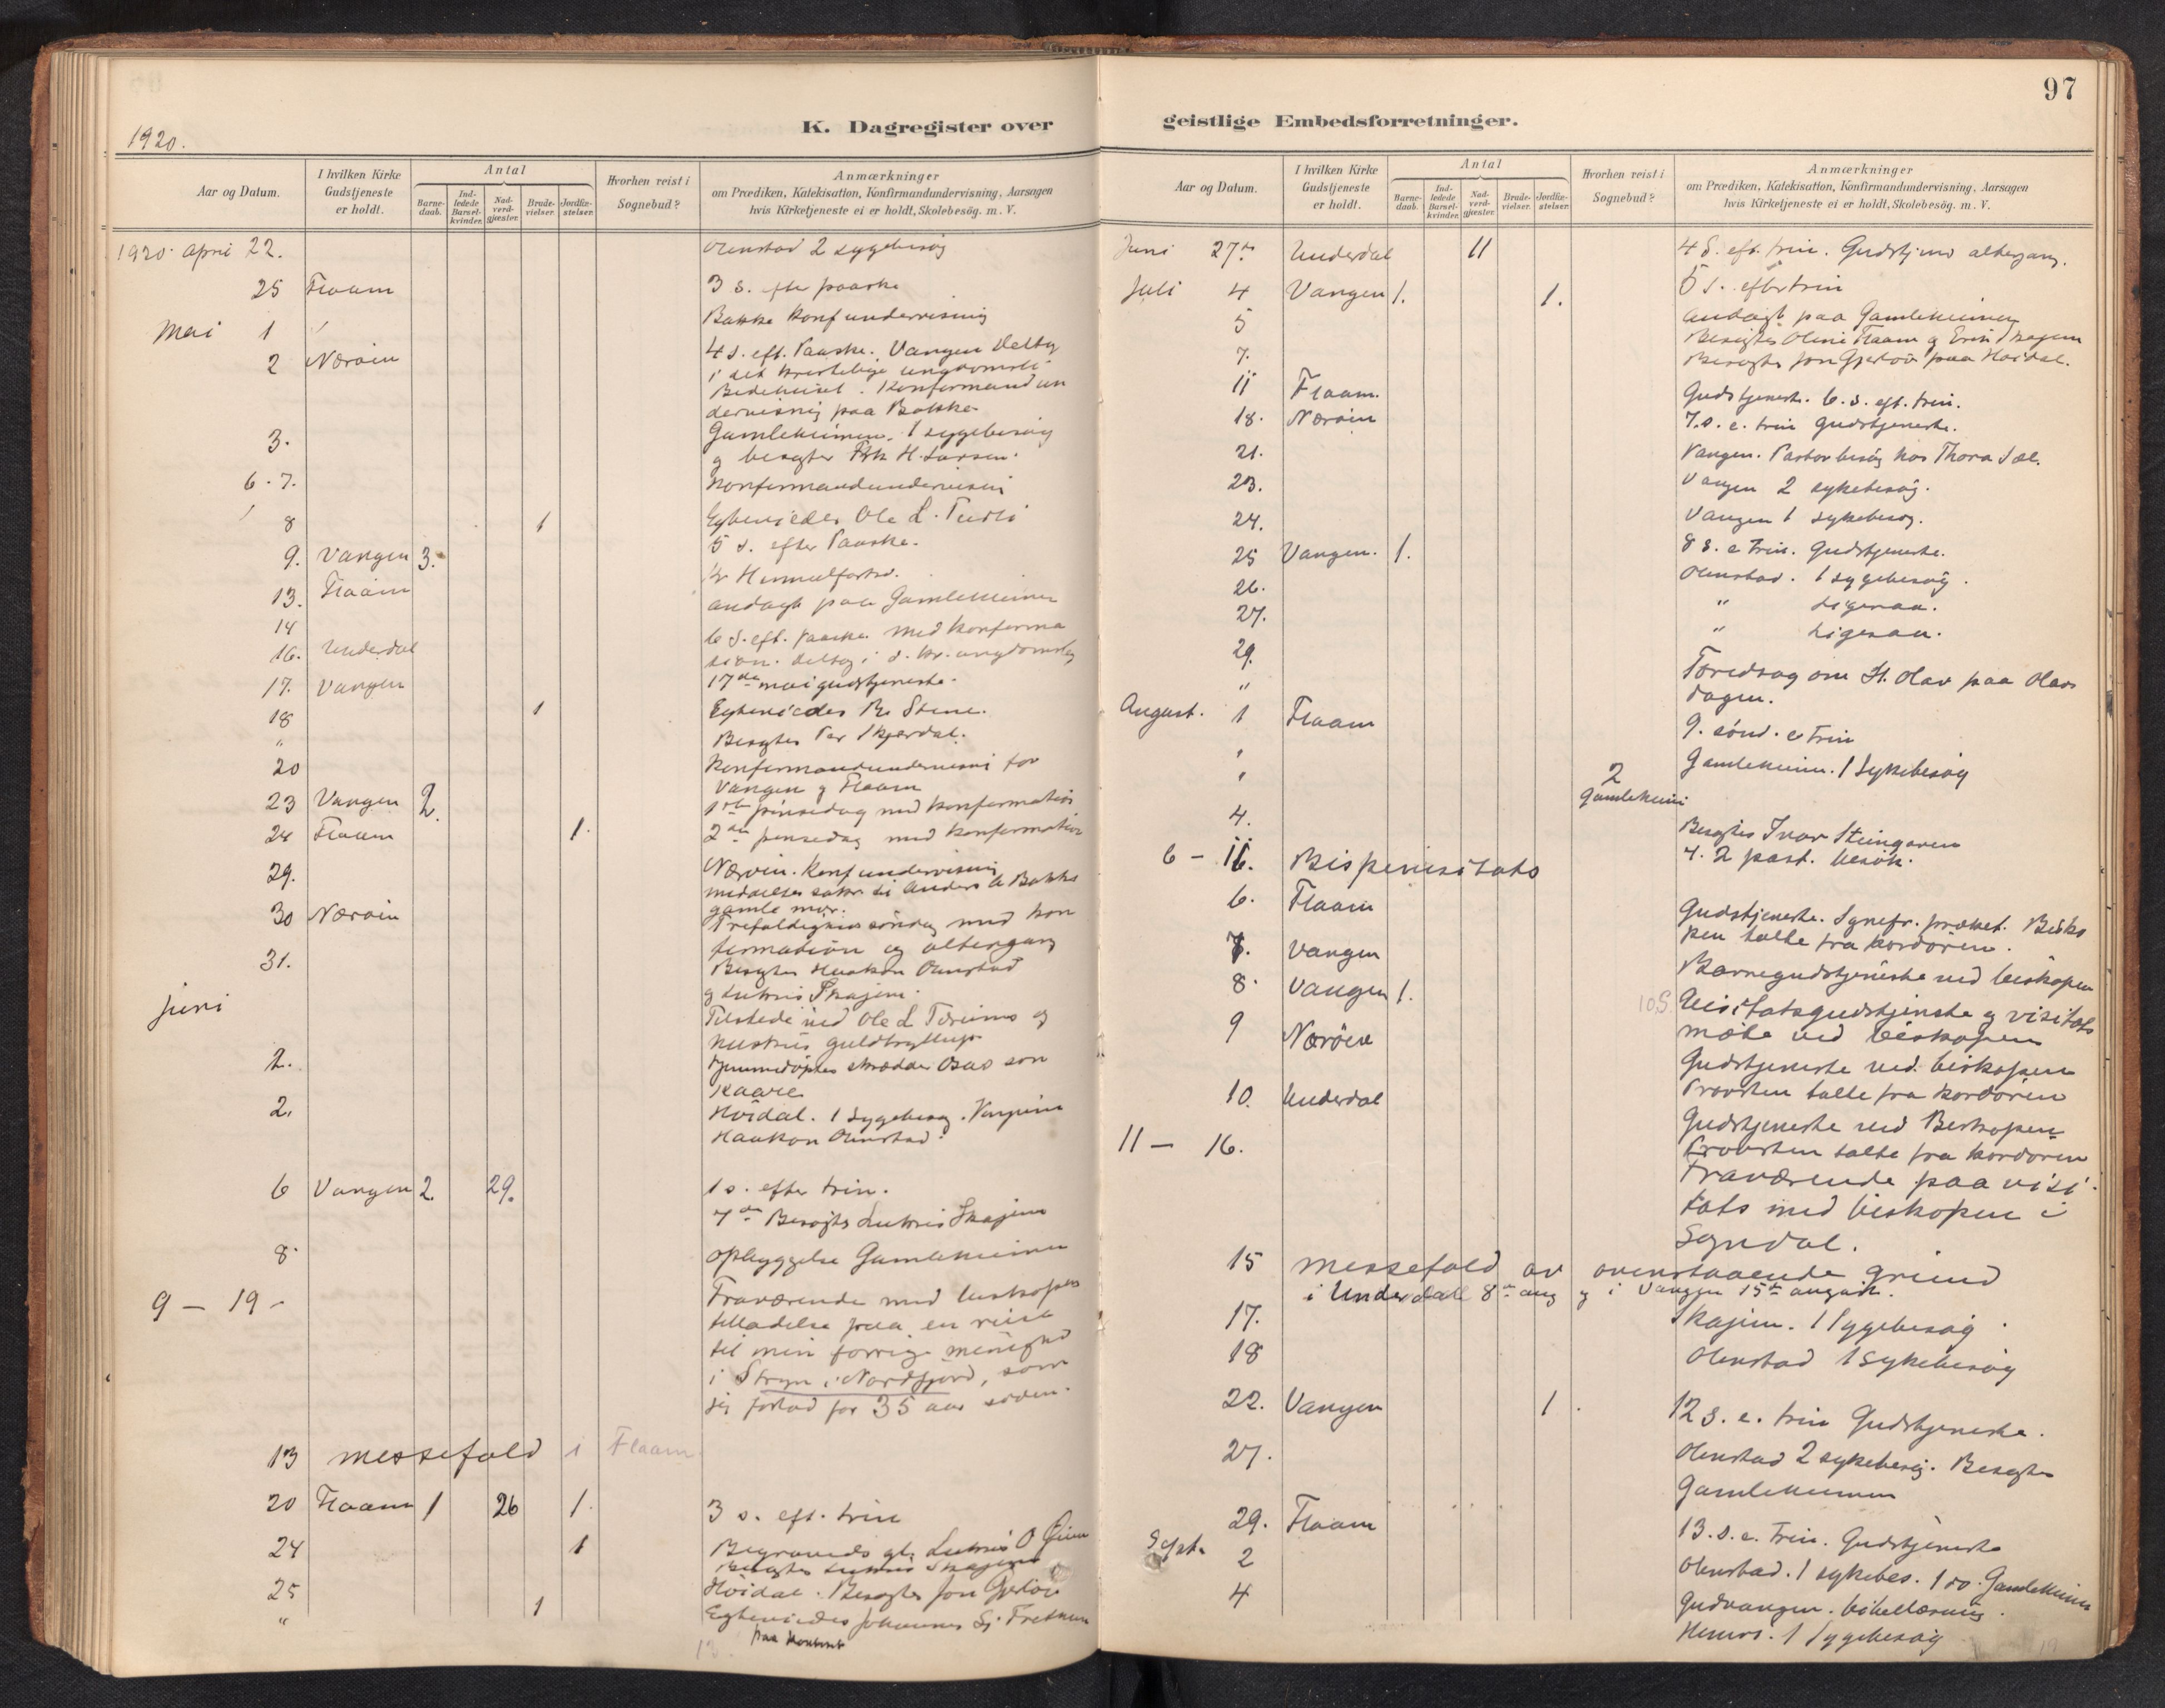 97
K. Dagregister over geistlige Embedsforretninger.
1920.
Aar og Datum.
I hvilken Kirke Gudstjeneste er holdt.
Antal
Barne-daab.
Ind-ledede Barsel-kvinder.
Nad-verd-gjæster.
Brude-vielser.
Jordfæ-stelser.
Hvorhen reist i Sognebud?
Anmærkninger
om Prædiken, Katekisation, Konfirmandundervisning, Aarsagen
hvis Kirketjeneste ei er holdt, Skolebesög. m. V.
1920. April 22. Olenstad 2 sygebesøg
25 Flaam 3 s. efter paaske
Mai 1 Bakke konfundervisning
2 Nærøin 4 s. eft. Paaske. Vangen Deltog
i det kristelige ungdomsli
Bedehuset. Konfirmandun
dervisning paa Bakke.
3. Gamleheimen. 1 sygebesøg
g besøgter Frk H. Larsen.
6 - 7. Konfirmandundervisni
8 1 Egtevieder Ole L.
9. Vangen 3. 5 s. efter Paaske.
13. Flaam Kr Himmelfartsd.
14 andagt paa Gamleheimen
16. Underdal 6 S. eft. paaske med konfirma
sion. deltog i d. kr. ungdomslag
17. Vangen 17de mai gudstjeneste.
18 1 Egtevieder
" Besøgtes Per Skjerdal.
20 Konfirmandundervisni for
Vangen g Flaam
23 Vangen 2. 1ste pinsedag med konfirmation
24 Flaam 1. 2den pinsedag med konfirmation
29. Nærøin. Konfundervisning
Anders A Bakke
gamle mor.
30 Nærøin Trefoldigheds søndag med kon
firmation og altergang
31. Besøgter Haakon Olenstad
g Lutris Skajem.
juni Tilstede ved Ole L og
hustrus guldbryllup
2. Hjemmedøptes skrædder son
Kaare
2. Høidal. 1 Sygebesøg.
Haakon Olenstad.
6 Vangen 2. 29. 1 s. efter trin.
7de Besøgte Lutris Skajem
8. Opbyggelse Gamleheimen
9 - 19 - Fraværende med biskopens
tilladelse paa en reise
til min forrige menighed
i Stryn i Nordfjord, som
jeg forlod for 35 aar siden.
13 messefald i Flaam
20 Flaam 1 26 1. 3 s. eft. trin
24 1 Begravedes gl. Lutris O
Besøgtes Lutris Skajem
25 Høidal. Besøgtes Jon Gjerløv
" 1 Egtevieder Johannes Sj. Fretheim
paa kontoret
Aar og Datum.
I hvilken Kirke Gudstjeneste er holdt.
Antal
Barne-daab.
Ind-ledede Barsel-kvinder.
Nad-verd-gjæster.
Brude-vielser.
Jordfæ-stelser.
Hvorhen reist i Sognebud?
Anmærkninger
om Prædiken, Katekisation, Konfirmandundervisning, Aarsagen
hvis Kirketjeneste ei er holdt, Skolebesög. m. V.
Juni 27de Underdal 11 4 S. eft. trin. Gudstjenes altergang.
Juli 4 Vangen 1. 1. 5 s. efter trin
5 andagt paa Gamleheimen
Besøgtes Oline Flaam g
7. Besøgtes Jon Gjerløv paa Høidal.
11 Flaam. Gudstjeneste. 6. s. eft. trin.
18. Nærøin 7. s. e. trin Gudstjeneste.
21. Vangen. Pastorbesøg hos Thora
23. Vangen 2 sykebesøg.
24. Vangen 1 sykebesøg.
25 Vangen. 1. 8 s. e Trin. Gudstjeneste.
26. Olenstad. 1 sygebesøg.
27. " Ligesaa.
29. " Ligesaa.
" Foredrag om St. Olav paa Olavs
dagen.
August. 1 Flaam 9. sønd. e Trin
" Gamleheim. 1 Sykebesøg
" 2 Gamleheim
4. Besøgtes Ivar Steingaren
4. 2 past. besøk.
6 - 11. Bispevisitats
6. Flaam Gudstjeneste. Sognepr. prædket. Bisko
pen talte fra kordøren.
7. Vangen Barnegudstjeneste ved biskopen
8. Vangen 1. 10 S. Visitatsgudstjeneste g visitats
møte ved biskopen
9 Nærøin Gudstjeneste ved biskopen
Provsten talte fra kordøren
10. Underdal Gudstjeneste ved Biskopen
Provsten talte fra kordøren
11 - 16. Fraværende paa visi
tats med biskopen i
Sogndal.
15 messefald av ovenstaaende grund
i Underdal 8de aug g i Vangen 15de august.
17. Skajem. 1 Sygebesøg.
18 Olenstad 1 sykebesøg
22. Vangen 1. 12 S. e. trin Gudstjeneste.
27. Olenstad 2 sykebesøg. Besøgtes
Gamleheimen
29. Flaam 13. s. e. Trin. Gudstjeneste
Sept. 2 Olenstad. 1 sykebes. 1 do. Gamleheimen
4 Gudvangen. bibellæsning.
1 Sygebesøg